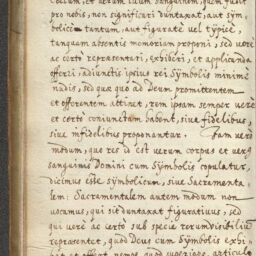 Coelum, et verum suum sanguinem, quem fudit
pro nobis, non significari duntaxat, aut sym,,
bolicè tantum, aut figuratè vel typicè,
tanquam absentis memoriam proponi, sed verè
ac certò repraesentari, exhiberi, et applicanda
offerri, adiunctis ipsius rei Symbolis minimè
nudis, sed quae quò ad Deum promittentem
et offerentem attinet, rem ipsam semper verè
et certò coniunctam habent, siue fidelibus,
siue infidelibus proponantur. Iam verò
modum, quo res id est verum corpus et verus
sanguinis Domini cum Symbolis copulatur,
dicimus esse Symbolicum, siue Sacramenta,,
lem: Sacramentalem autem modum non
vocamus, qui sit duntaxat figuratiuus, sed
qui verè ac certò sub specie rerum visibilium
repraesentet, quod Deus cum Symbolis exhi,,
bet et offert, nempe quod superiore articulo